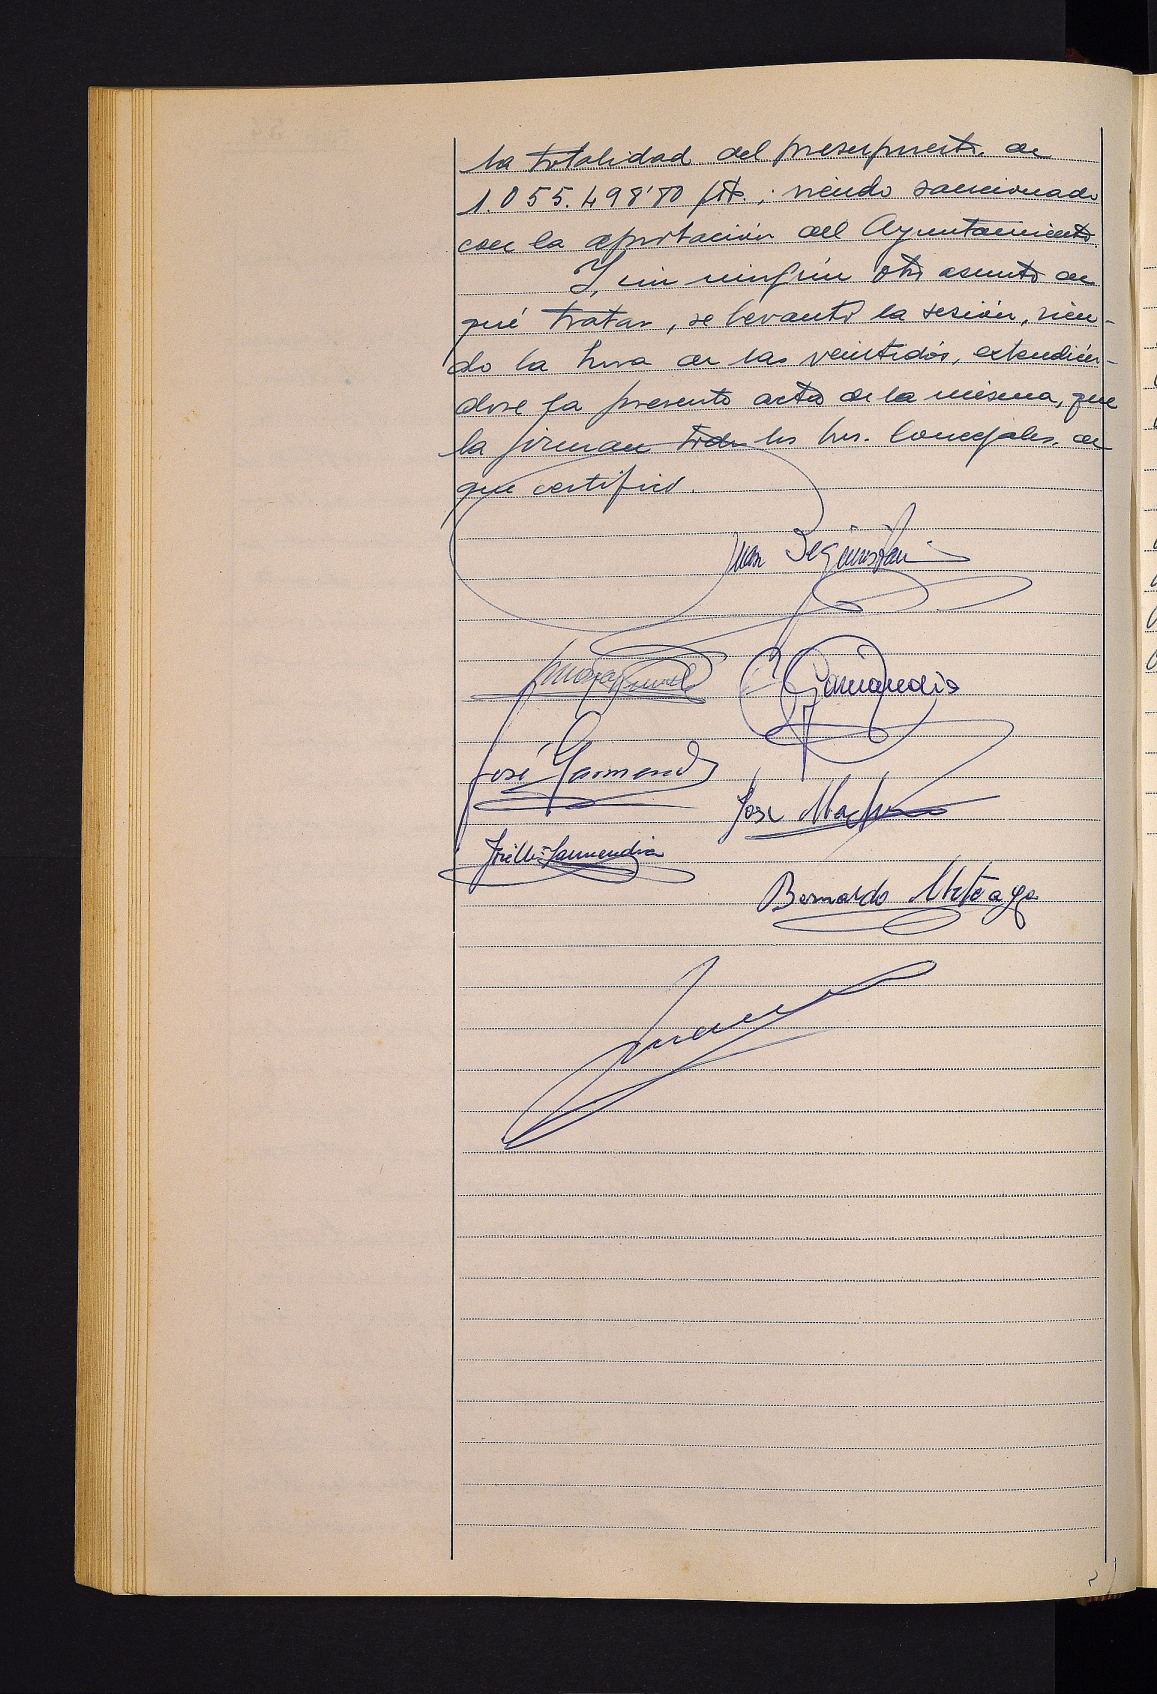 la totalidad del presupuesto, de
1.055.498'80 pts.; siendo sancionado
con la aportación del Ayuntamiento.
Y, sin ningún otro asunto de
qué tratar, se levantó la sesión, sien-
do la hora de las veintidós, extendién-
dose la presente acta de la misma, que
la firman todos los Srs. Concejales, de
que certifico.
Juan Beguiristain
Garmendia
José Garmendia
José Ma
Garmendia
Bernardo Arteaga